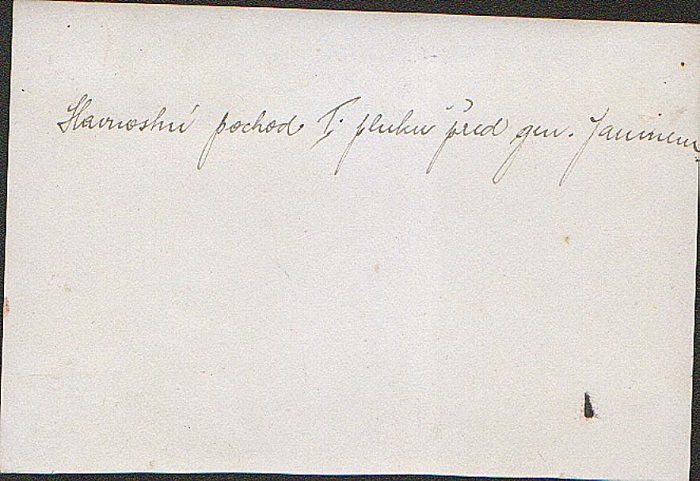 Slavnostní pochod I. pluku před gen. Janinem